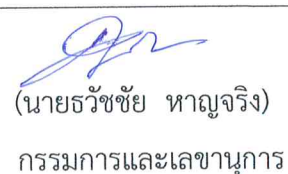 (นายธวัชชัย หาญจริง)
กรรมการและเลขานุการ